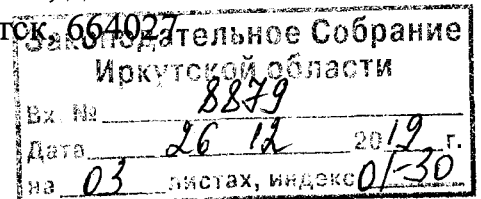 тск, 664027
Законодательное Собрание
Иркутской области
Вх. № 8879
Дата 26 12 2019 г.
на 03 листах, индекс 01-30